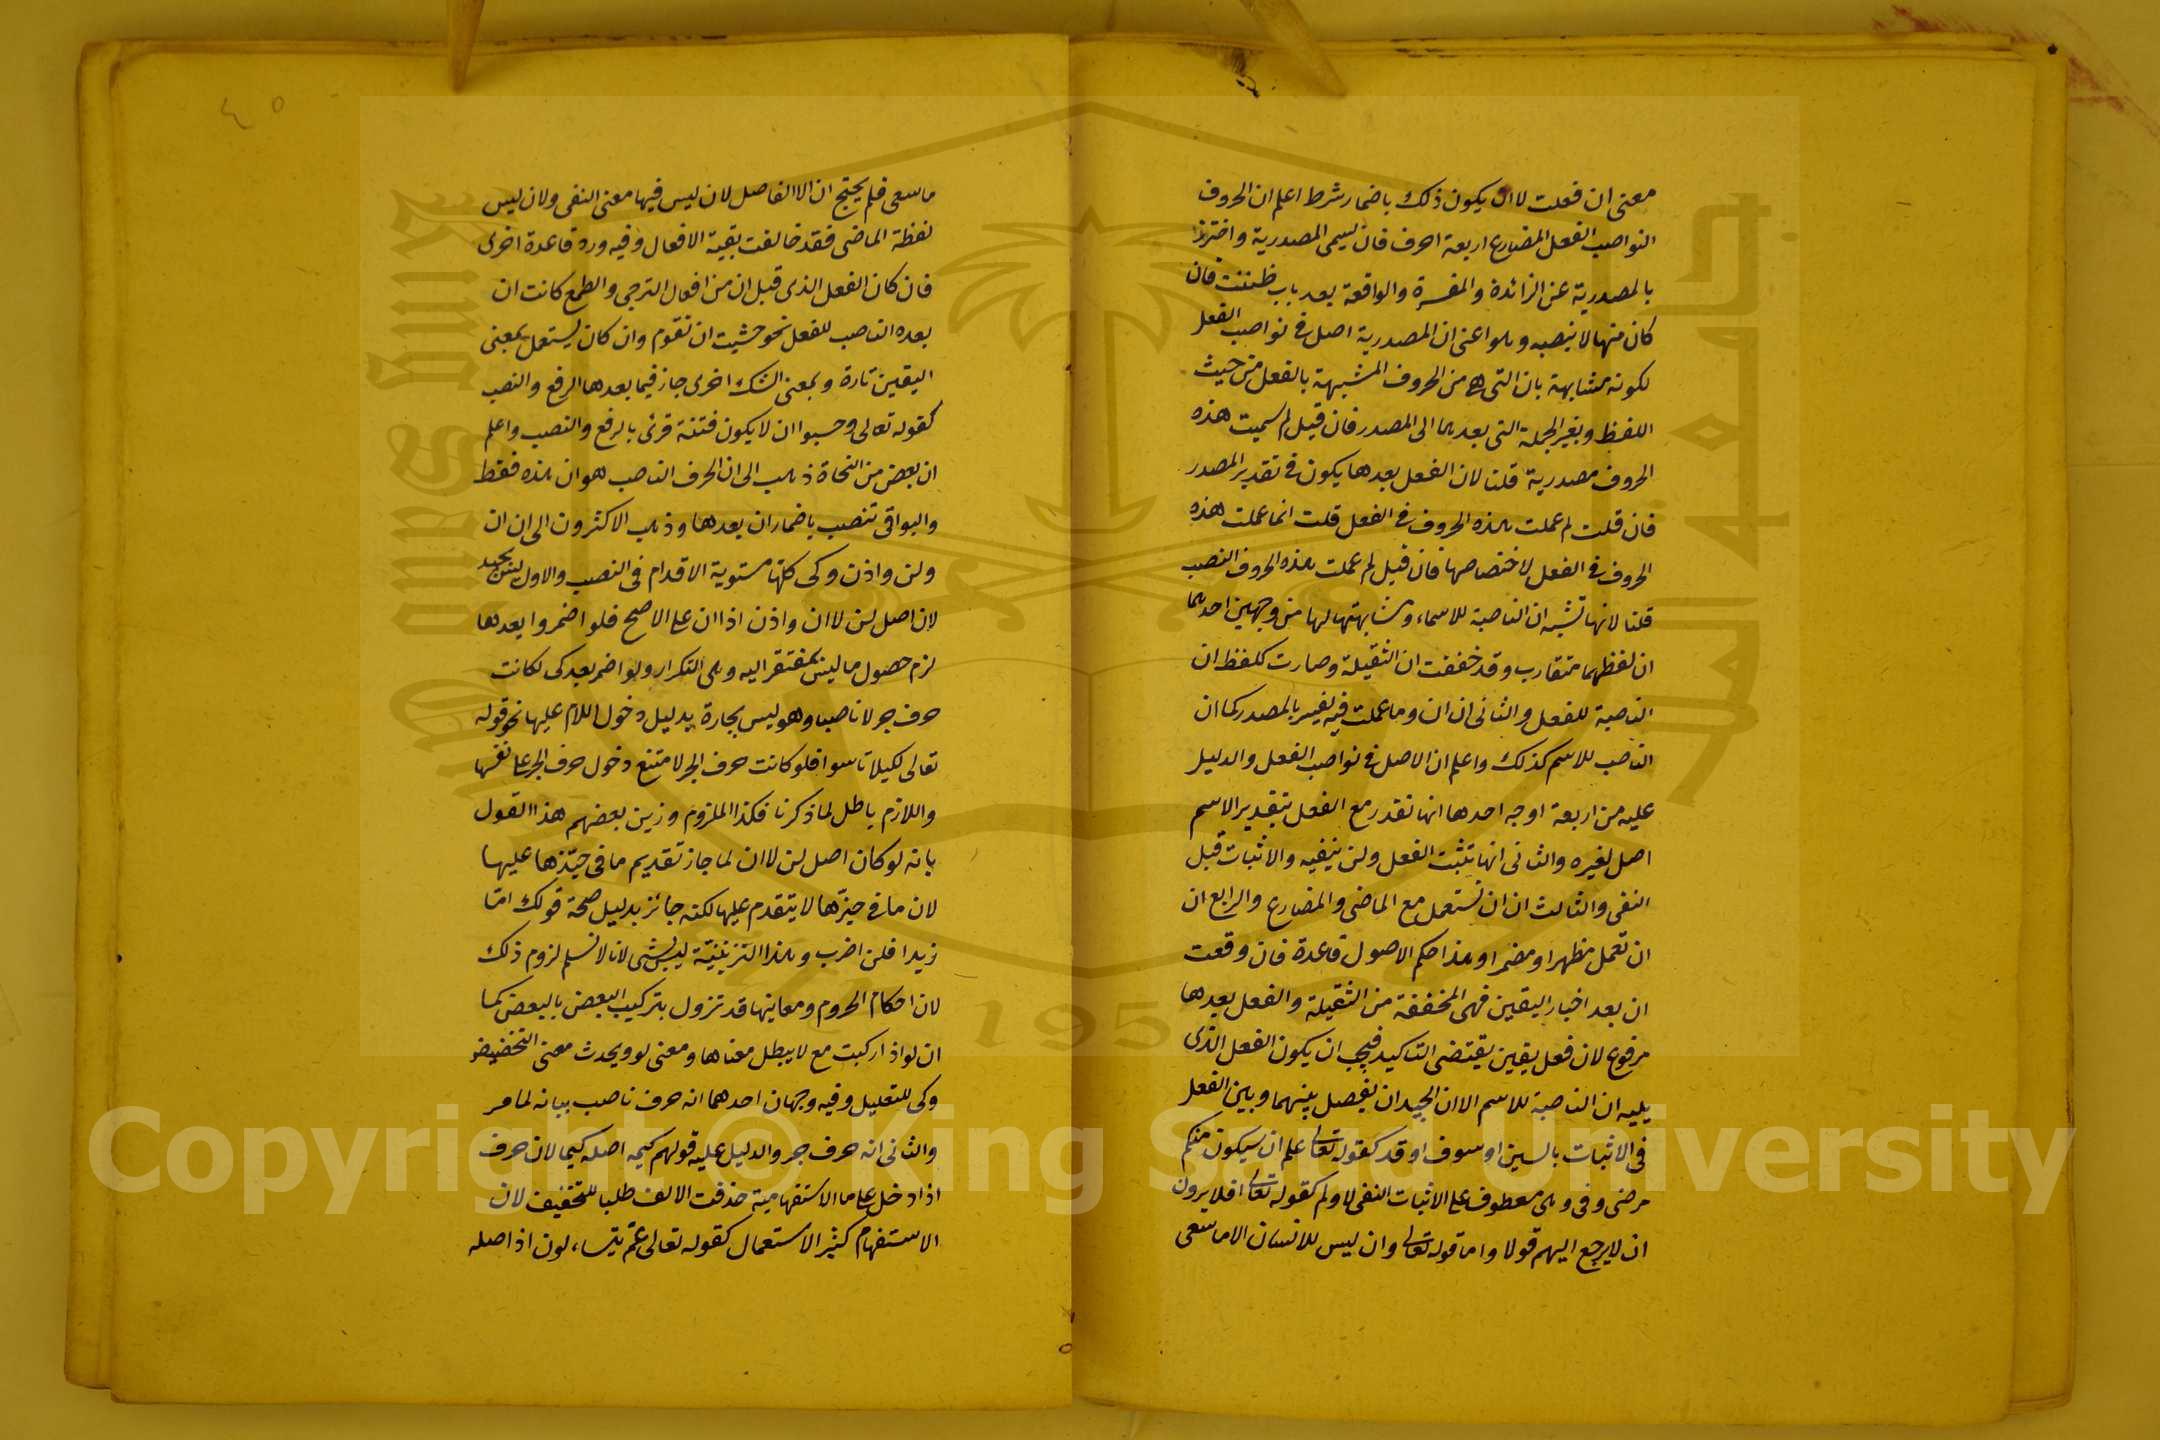 معنى ان فعلت لا ان يكون ذلك باضمار شرط اعلم ان الحروف
النواصب الفعل المضارع اربعة احرف فان يسمى المصدرية واحترز
بالمصدرية عن الزائدة والمفسرة والواقعة بعد باب ظننت فان
كان منها لا ينصبه وهو اعنى ان المصدرية اصل فى نواصب الفعل
لكونه مشابهة بان التى هى من الحروف المشبهة بالفعل من حيث
اللفظ وبغير الجملة التى بعدها الى المصدر فان قيل لم سميت هذه
الحروف مصدرية قلنا لان الفعل بعدها يكون فى تقدير المصدر
فان قلت لم عملت هذه الحروف فى الفعل قلت انما عملت هذه
الحروف فى الفعل لاختصاصها فان قيل لم عملت هذه الحروف النصب
قلنا لانها تشبه ان الناصبة للاسماء ومشابهتها لها من وجهين احدهما
ان لفظهما متقارب وقد خففت ان الثقيلة وصارت كلفظ ان
الناصبة للفعل والثانى ان ان وما عملت فيه يفسر بالمصدر كما ان
الناصب للاسم كذلك واعلم ان الاصل فى نواصب الفعل والدليل
عليه من اربعة اوجه احدها انها تقدر مع الفعل بتقدير الاسم
اصل لغيره والثانى انها تثبت الفعل ولن ينفيه والاثبات قبل
النفى والثالث ان ان تستعمل مع الماضى والمضارع والرابع ان
ان تعمل مظهرا ومضمرا وهذا حكم الاصول قاعدة فان وقعت
ان بعد اخبار اليقين فهى المخففة من الثقيلة والفعل بعدها
مرفوع لان فعل يقين يقتضى التاكيد فيجب ان يكون الفعل الذى
يليه ان الناصبة للاسم الا ان الجيد ان يفصل بينهما وبين الفعل
فى الاثبات بالسين او سوف او قد كقوله تعالى علم ان سيكون منكم
مرضى وفى وهى معطوف على الاثبات النفى لا ولم كقوله تعالى افلا يرون
ان لا يرجع اليهم قولا واما قوله تعالى وان ليس للانسان الا ما سعى
٤٥
ما سعى فلم يحتج ان الا الفاصل لان ليس فيها معنى النفى ولان ليس
لفظة الماضى فقد خالفت بقية الافعال وفيه ورد قاعدة اخرى
فان كان الفعل الذى قبل ان من افعال الترجى والطمع كانت ان
بعده الناصب للفعل نحو خشيت ان تقوم وان كان يستعمل بمعنى
اليقين تارة وبمعنى الشك اخرى جاز فيما بعدها الرفع والنصب
كقوله تعالى وحسبوا ان لا يكون فتنة قرئ بالرفع والنصب واعلم
ان بعض من النحاة ذهب الى ان الحرف الناصب هو ان هذه فقط
والبواقى تنصب باضمار ان بعدها وذهب الاكثرون الى ان ان
ولن واذن وكى كلها مستوية الاقدام فى النصب والاول ليس بجيد
لان اصل لن لا ان واذن اذا ان على الاصح فلو اضمروا بعدها
لزم حصول ما ليس بمفتقر اليه وهى التكرار ولو اضمر بعد كى لكانت
حرف جر لا ناصبا وهو ليس بجارة بدليل دخول اللام عليها نحو قوله
تعالى لكيلا تاسوا فلو كانت حرف الجر لامتنع دخول حرف الجر على نفسها
واللازم باطل لما ذكرنا فكذا الملزوم وزين بعضهم هذا القول
بانه لو كان اصل لن لا ان لما جاز تقديم ما فى حيّزها عليها
لان ما فى حيزها لا يتقدم عليها لكنه جائز بدليل صحة قولك امّا
زيدا فلن اضرب وهذا ليس بشى لانا لا نسلم لزوم ذلك
لان احكام الحروم ومعانيها قد تزول بتركيب البعض بالبعض كما
ان لو اذا ركبت مع لا يبطل معناها ومعنى لو ويحدث معنى التخضيض
وكى للتعليل وفيه وجهان احدهما انه حرف ناصب بيانه لما مر
والثانى انه حرف جر والدليل عليه قولهم كيمه اصله كيما لان حرف
اذا دخل على ما الاستفهامية حذفت الالف طلبا للتخفيف لان
الاستفهام كثير الاستعمال كقوله تعالى عمّ يتساءلون اذ اصله
Copyright © King Saud University